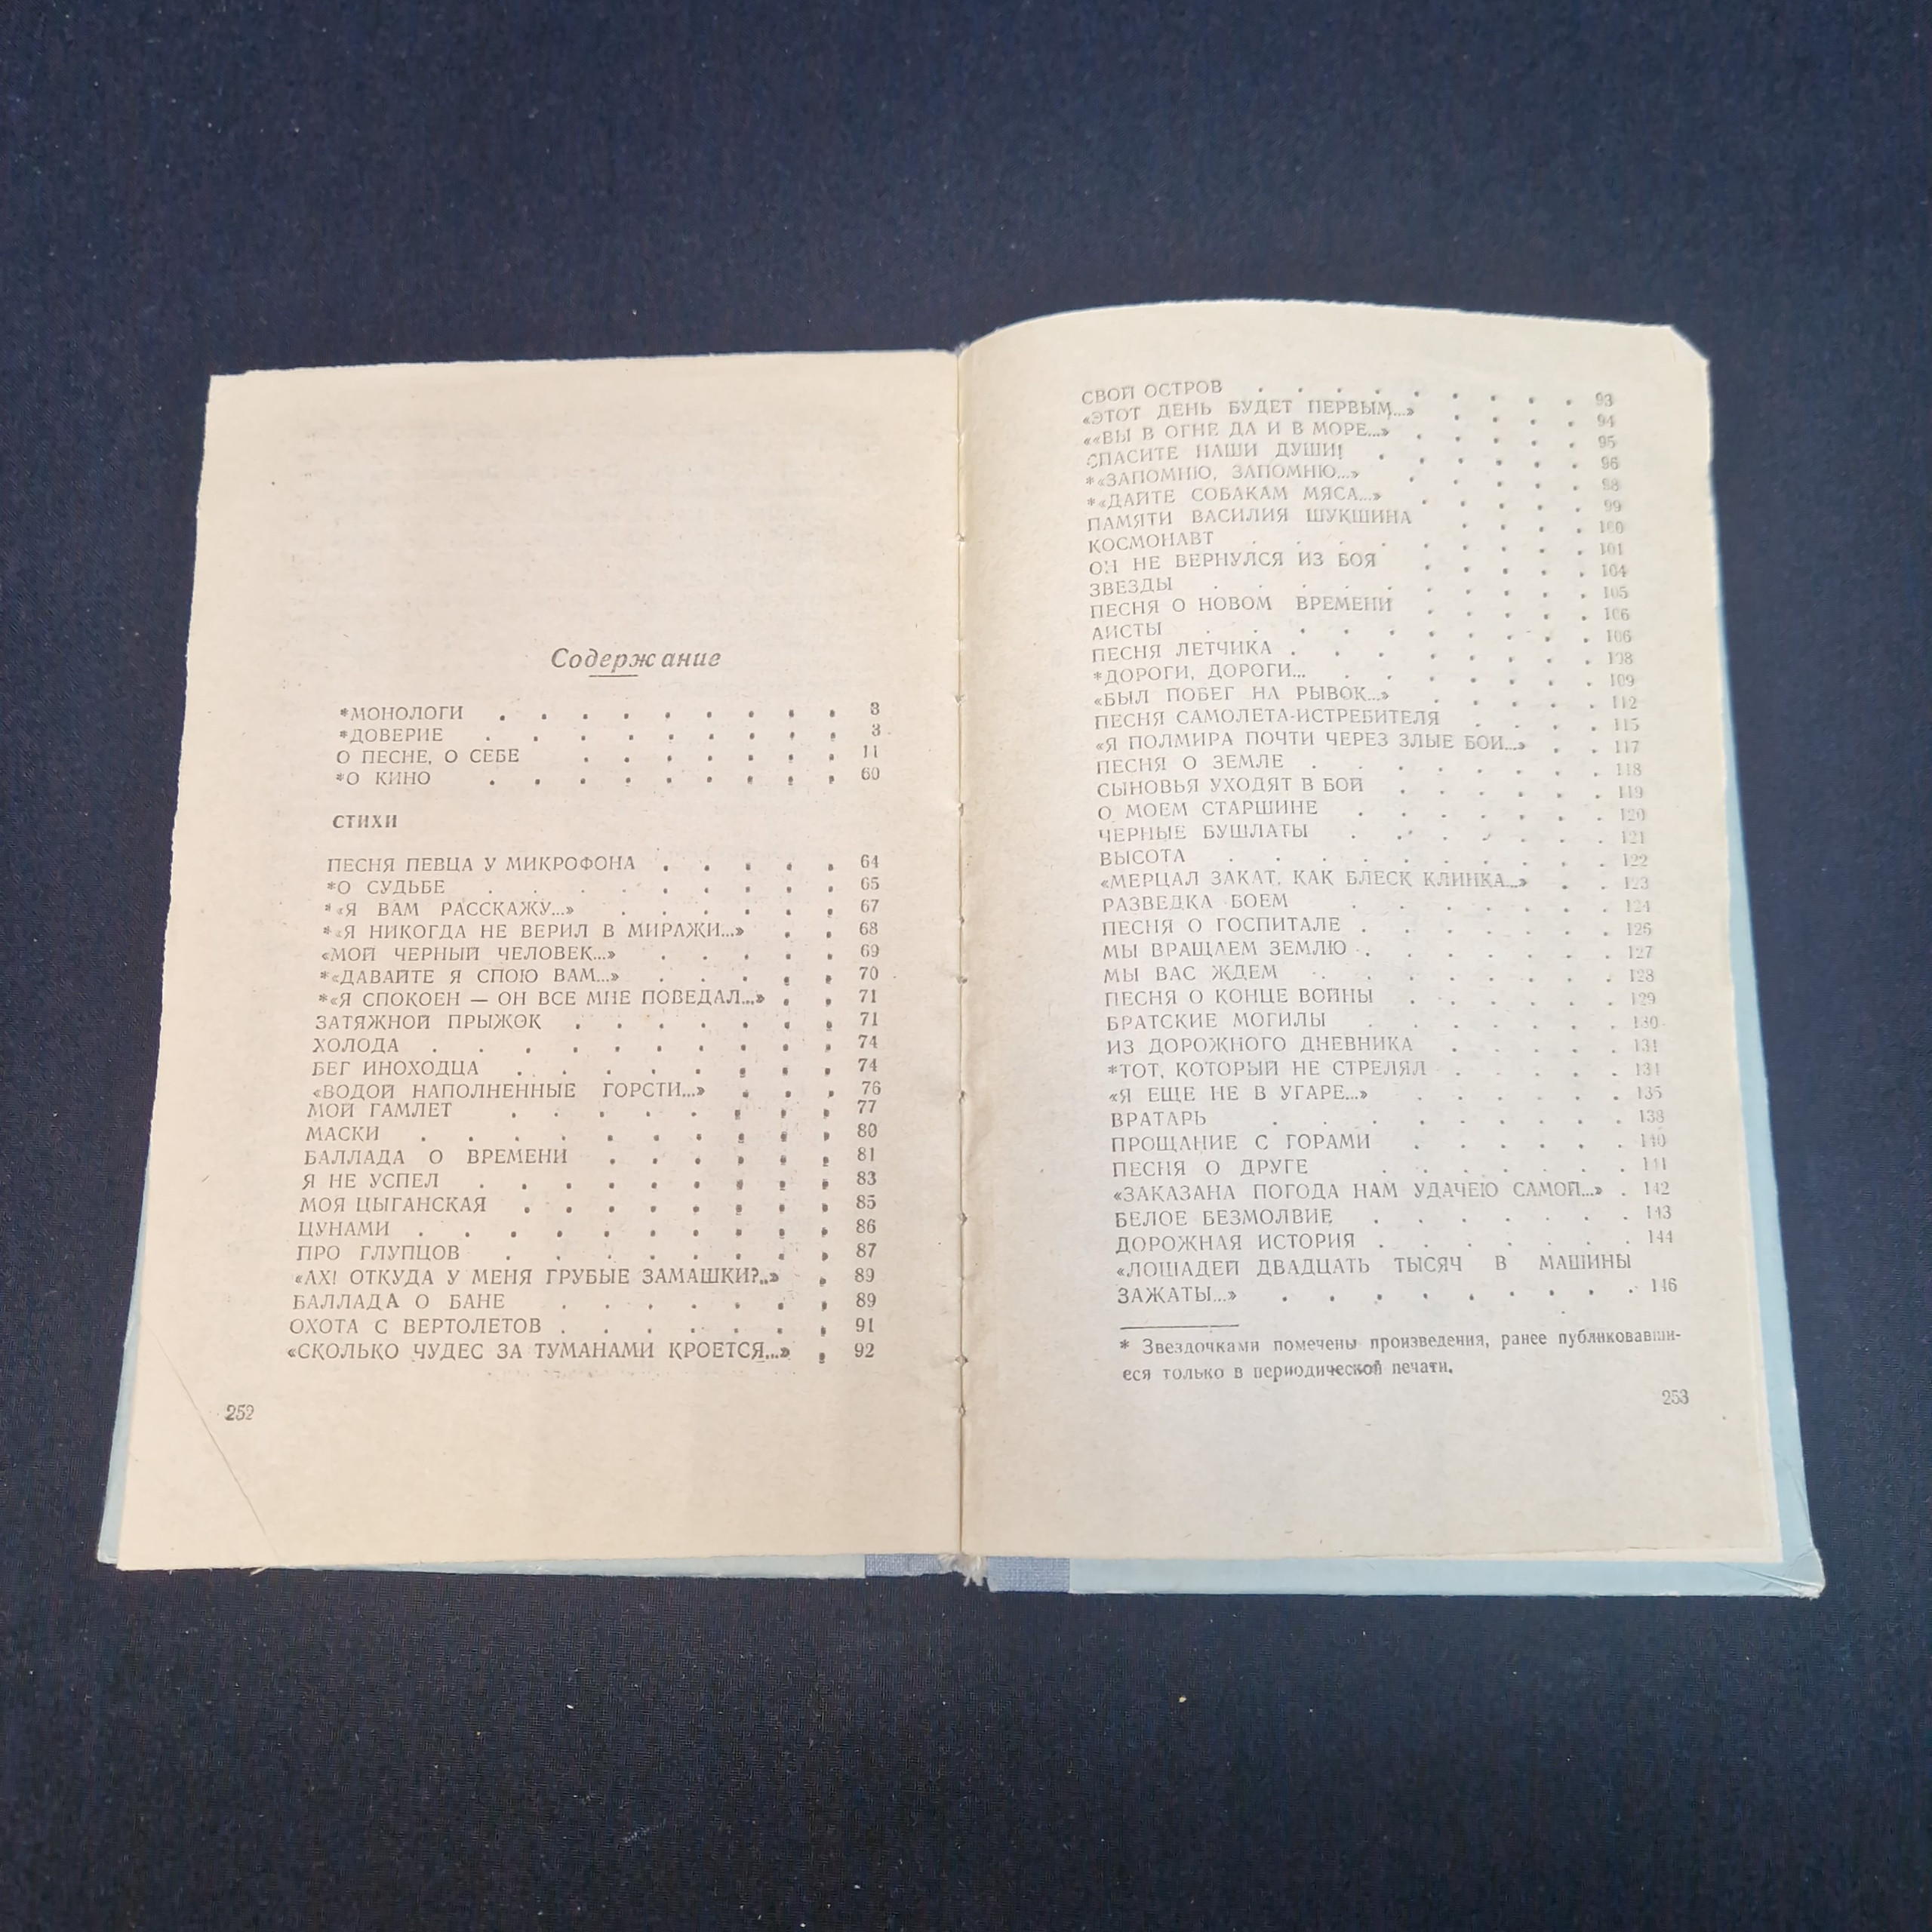 Содержание
*МОНОЛОГИ . . . . . . . . . 3
*ДОВЕРИЕ . . . . . . . . 3
О ПЕСНЕ, О СЕБЕ . . . . . . . 11
*О КИНО . . . . . . . . 60
СТИХИ
ПЕСНЯ ПЕВЦА У МИКРОФОНА . . . . . 64
*О СУДЬБЕ . . . . . . . . 65
*«Я ВАМ РАССКАЖУ...» . . . . . . 67
*«Я НИКОГДА НЕ ВЕРИЛ В МИРАЖИ...» . . 68
«МОЙ ЧЕРНЫЙ ЧЕЛОВЕК...» . . . . . 69
*«ДАВАЙТЕ Я СПОЮ ВАМ...» . . . . . 70
*«Я СПОКОЕН — ОН ВСЕ МНЕ ПОВЕДАЛ...» . . 71
ЗАТЯЖНОЙ ПРЫЖОК . . . . . . . 71
ХОЛОДА . . . . . . . . . 74
БЕГ ИНОХОДЦА . . . . . . . . 74
«ВОДОЙ НАПОЛНЕННЫЕ ГОРСТИ...» . . . 76
МОЙ ГАМЛЕТ . . . . . . . . 77
МАСКИ . . . . . . . . . . 80
БАЛЛАДА О ВРЕМЕНИ . . . . . . 81
Я НЕ УСПЕЛ . . . . . . . . . 83
МОЯ ЦЫГАНСКАЯ . . . . . . . . 85
ЦУНАМИ . . . . . . . . . . 86
ПРО ГЛУПЦОВ . . . . . . . . 87
«АХ! ОТКУДА У МЕНЯ ГРУБЫЕ ЗАМАШКИ?..» . 89
БАЛЛАДА О БАНЕ . . . . . . . 89
ОХОТА С ВЕРТОЛЕТОВ . . . . . . . 91
«СКОЛЬКО ЧУДЕС ЗА ТУМАНАМИ КРОЕТСЯ...» . 92
252
СВОЙ ОСТРОВ . . . . . . . . . 93
«ЭТОТ ДЕНЬ БУДЕТ ПЕРВЫМ...» . . . . 94
««ВЫ В ОГНЕ ДА И В МОРЕ...» . . . . . 95
СПАСИТЕ НАШИ ДУШИ! . . . . . . 96
*«ЗАПОМНЮ, ЗАПОМНЮ...» . . . . . 98
*«ДАЙТЕ СОБАКАМ МЯСА...» . . . . . 99
ПАМЯТИ ВАСИЛИЯ ШУКШИНА . . . . 100
КОСМОНАВТ . . . . . . . . . 101
ОН НЕ ВЕРНУЛСЯ ИЗ БОЯ . . . . . 104
ЗВЕЗДЫ . . . . . . . . . 105
ПЕСНЯ О НОВОМ ВРЕМЕНИ . . . . . 106
АИСТЫ . . . . . . . . . 106
ПЕСНЯ ЛЕТЧИКА . . . . . . . . 108
*ДОРОГИ, ДОРОГИ... . . . . . . . 109
«БЫЛ ПОБЕГ НА РЫВОК...» . . . . . 112
ПЕСНЯ САМОЛЕТА-ИСТРЕБИТЕЛЯ . . . . 115
«Я ПОЛМИРА ПОЧТИ ЧЕРЕЗ ЗЛЫЕ БОИ...» . . 117
ПЕСНЯ О ЗЕМЛЕ . . . . . . . . 118
СЫНОВЬЯ УХОДЯТ В БОЙ . . . . . . 119
О МОЕМ СТАРШИНЕ . . . . . . . 120
ЧЕРНЫЕ БУШЛАТЫ . . . . . . . 121
ВЫСОТА . . . . . . . . . 122
«МЕРЦАЛ ЗАКАТ, КАК БЛЕСК КЛИНКА...» . . 123
РАЗВЕДКА БОЕМ . . . . . . . 124
ПЕСНЯ О ГОСПИТАЛЕ . . . . . . . 126
МЫ ВРАЩАЕМ ЗЕМЛЮ . . . . . . . 127
МЫ ВАС ЖДЕМ . . . . . . . . 128
ПЕСНЯ О КОНЦЕ ВОЙНЫ . . . . . . 129
БРАТСКИЕ МОГИЛЫ . . . . . . . 130
ИЗ ДОРОЖНОГО ДНЕВНИКА . . . . . 131
*ТОТ, КОТОРЫЙ НЕ СТРЕЛЯЛ . . . . . 134
«Я ЕЩЕ НЕ В УГАРЕ...» . . . . . . 135
ВРАТАРЬ . . . . . . . . . 138
ПРОЩАНИЕ С ГОРАМИ . . . . . . 140
ПЕСНЯ О ДРУГЕ . . . . . . . 141
«ЗАКАЗАНА ПОГОДА НАМ УДАЧЕЮ САМОЙ...» . 142
БЕЛОЕ БЕЗМОЛВИЕ . . . . . . . 143
ДОРОЖНАЯ ИСТОРИЯ . . . . . . . 144
«ЛОШАДЕЙ ДВАДЦАТЬ ТЫСЯЧ В МАШИНЫ
ЗАЖАТЫ...» . . . . . . . . . 146
* Звездочками помечены произведения, ранее публиковавши-
еся только в периодической печати.
253